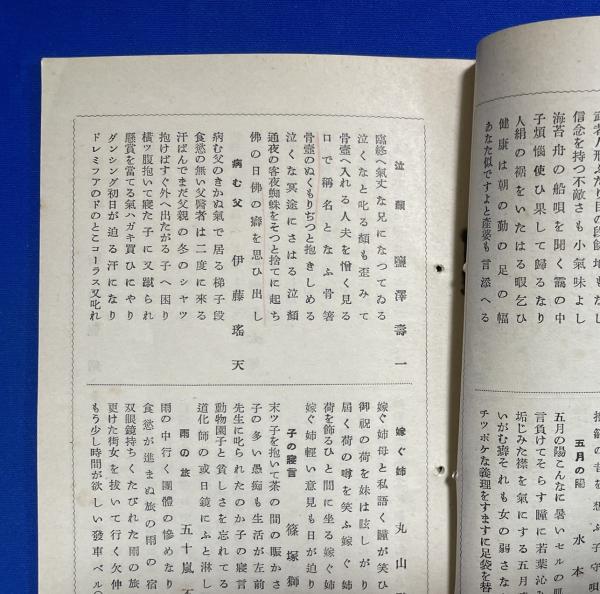 武者人形ふたり目の段飾
信念を持つ不敵さも小氣味よし
海苔舟の船唄を聞く靄の中
子煩惱使ひ果して歸るなり
人絹の裾をいたはる暇乞ひ
健康は朝の勤の足の幅
あなた似ですよと產婆も言添へる
五月の陽　水本
五月の陽こんなに暑いセルの肌
言負けてそらす瞳に若葉沁み
垢じみた襟を氣にする五月
いがむ癖それも女の弱さな
チツポケな義理をすますに足袋を替
泣顏　鹽澤壽一
臨終へ氣丈な兄になつてゐる
泣くなと叱る顏も歪みて
骨壺へ入れる人夫を憎く見る
口で稱名となふ骨箸
骨壺のぬくもりぢつと抱きしめる
泣くな冥途にさはる泣顏
通夜の客夜蜘蛛をそつと捨てに起ち
佛の日佛の癖を思ひ出し
病む父　伊藤瑤天
病む父のきかぬ氣で居る梯子段
食慾の無い父醫者は二度に來る
汗ばんでまだ父親の冬のシヤツ
抱けばすぐ外へ出たがる子へ困り
橫ツ腹抱いて寢た子に又蹴られ
懸賞を當てる氣ハガキ買ひにやり
ダンシング初日が迫る汗になり
ドレミフアのドのとこコーラス又叱れ
嫁ぐ姉　丸山
嫁ぐ姉母と私語く瞳が笑ひ
御祝の荷を妹は眩しがり
屆く荷の噂を笑ふ嫁ぐ姉
荷を飾るひと間に坐る嫁ぐ姉
嫁ぐ姉輕い意見も日が迫り
子の寢言　篠塚獅
末ツ子を抱いて茶の間の賑かさ
子の多い愚痴も生活が左前
先生に叱られたのか子の寢言
動物園子と貧しさを忘れてる
道化師の或日鏡にふと淋し
雨の旅　五十嵐
雨の中行く團體の慘めなり
食慾が進まぬ旅の雨の宿
双眼鏡持ちくたびれた雨の旅
更けた街女を拔いて行く欠伸
もう少し時間が欲しい發車ベル